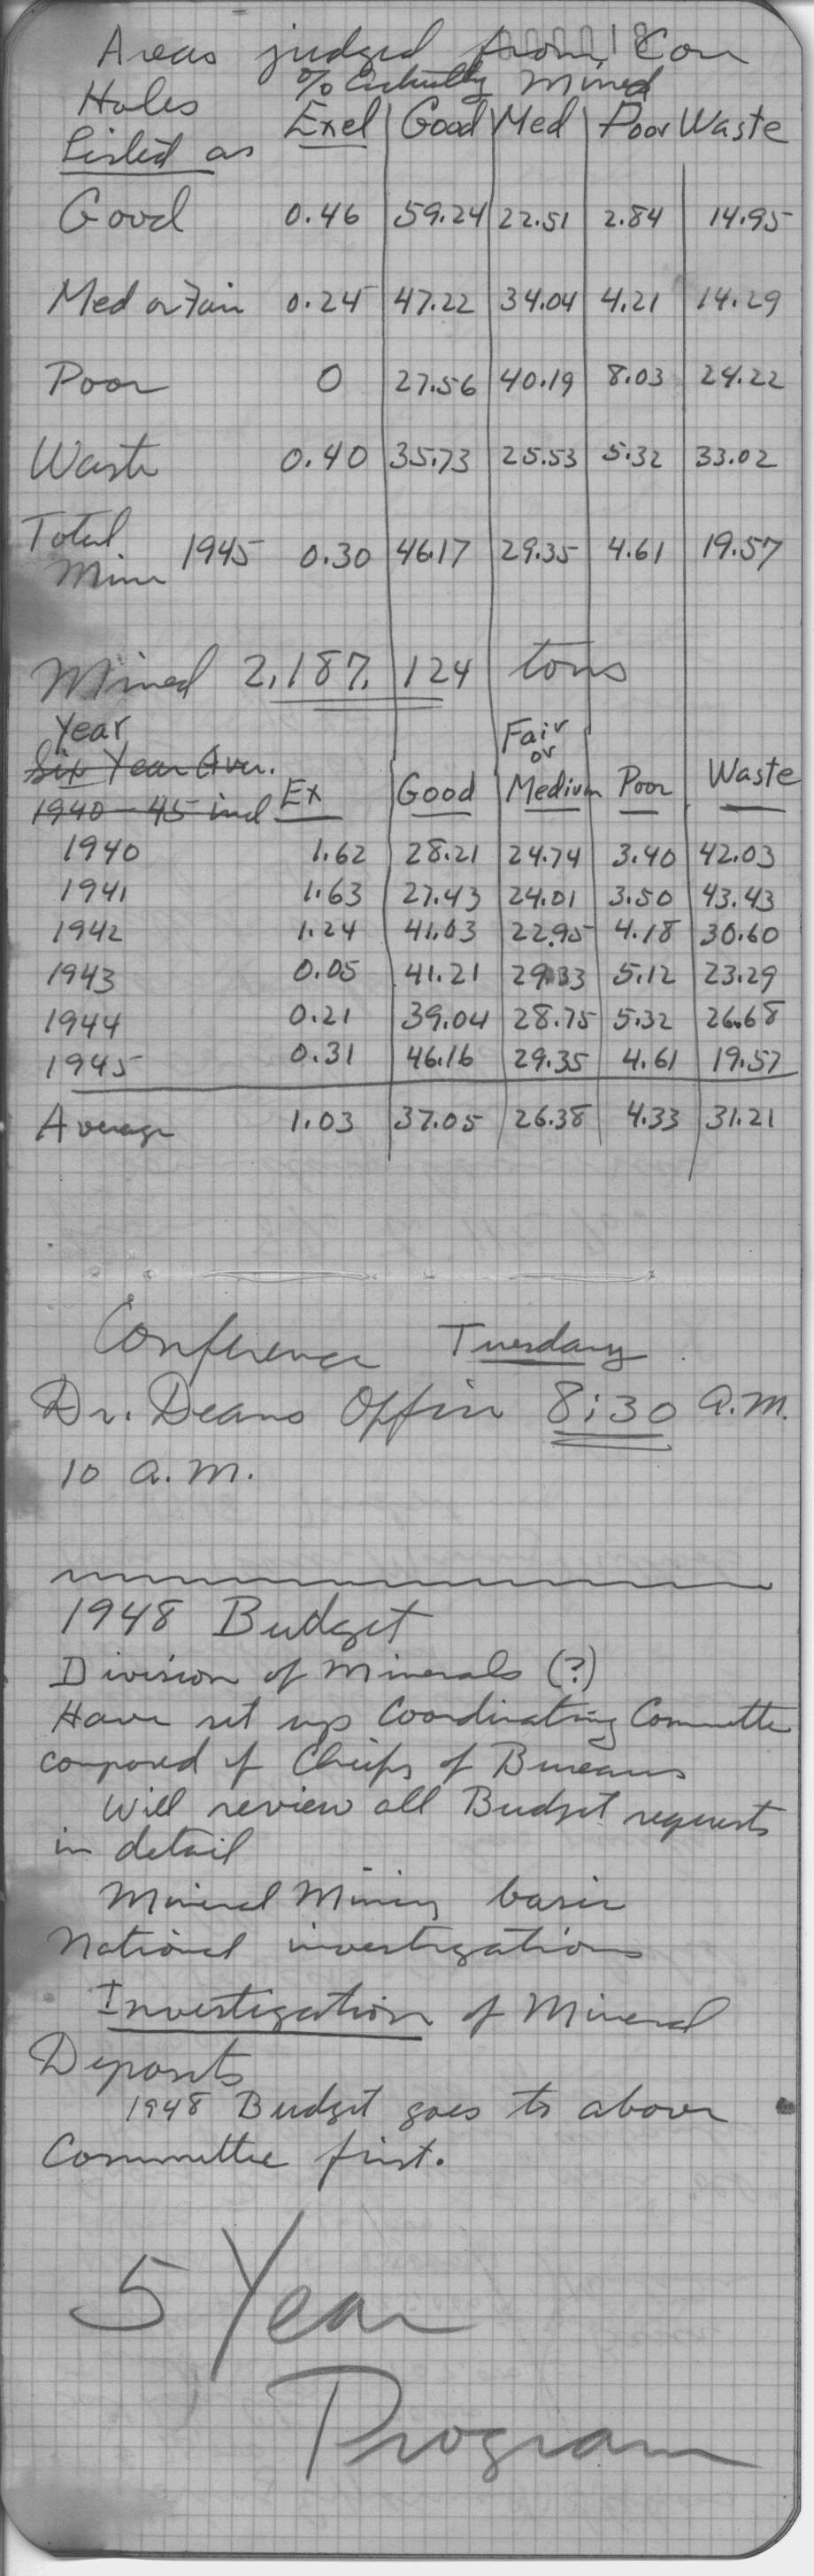 Areas judged from Core
% Actually Mined
Holes Exel Good Med Poor Waste
Listed as
Good 0.46 59.24 22.51 2.84 14.95
Med or Fair 0.24 47.22 34.04 4.21 14.29
Poor 0 27.56 40.19 8.03 24.22
Waste 0.40 35.73 25.53 5.32 33.02
Total
Mine 1945 0.30 46.17 29.35 4.61 19.57
Mined 2,187,124 tons
Year Fair
Six Year Aver. or
1940-45 incl Ex Good Medium Poor Waste
1940 1.62 28.21 24.74 3.40 42.03
1941 1.63 27.43 24.01 3.50 43.43
1942 1.24 41.03 22.95 4.18 30.60
1943 0.05 41.21 29.33 5.12 23.29
1944 0.21 39.04 28.75 5.32 26.68
1945 0.31 46.16 29.35 4.61 19.57
Average 1.03 37.05 26.38 4.33 31.21
Conference Tuesday
Dr. Deans Office 8:30 A.M.
10 a.m.
1948 Budget
Division of Minerals (?)
Have set up Coordinating Committee
composed of Chiefs of Bureaus
Will review all Budget requests
in detail
Mineral Mining basic
National investigations
Investigation of Mineral
Deposits
1948 Budget goes to above
Committee first.
5 Year
Program